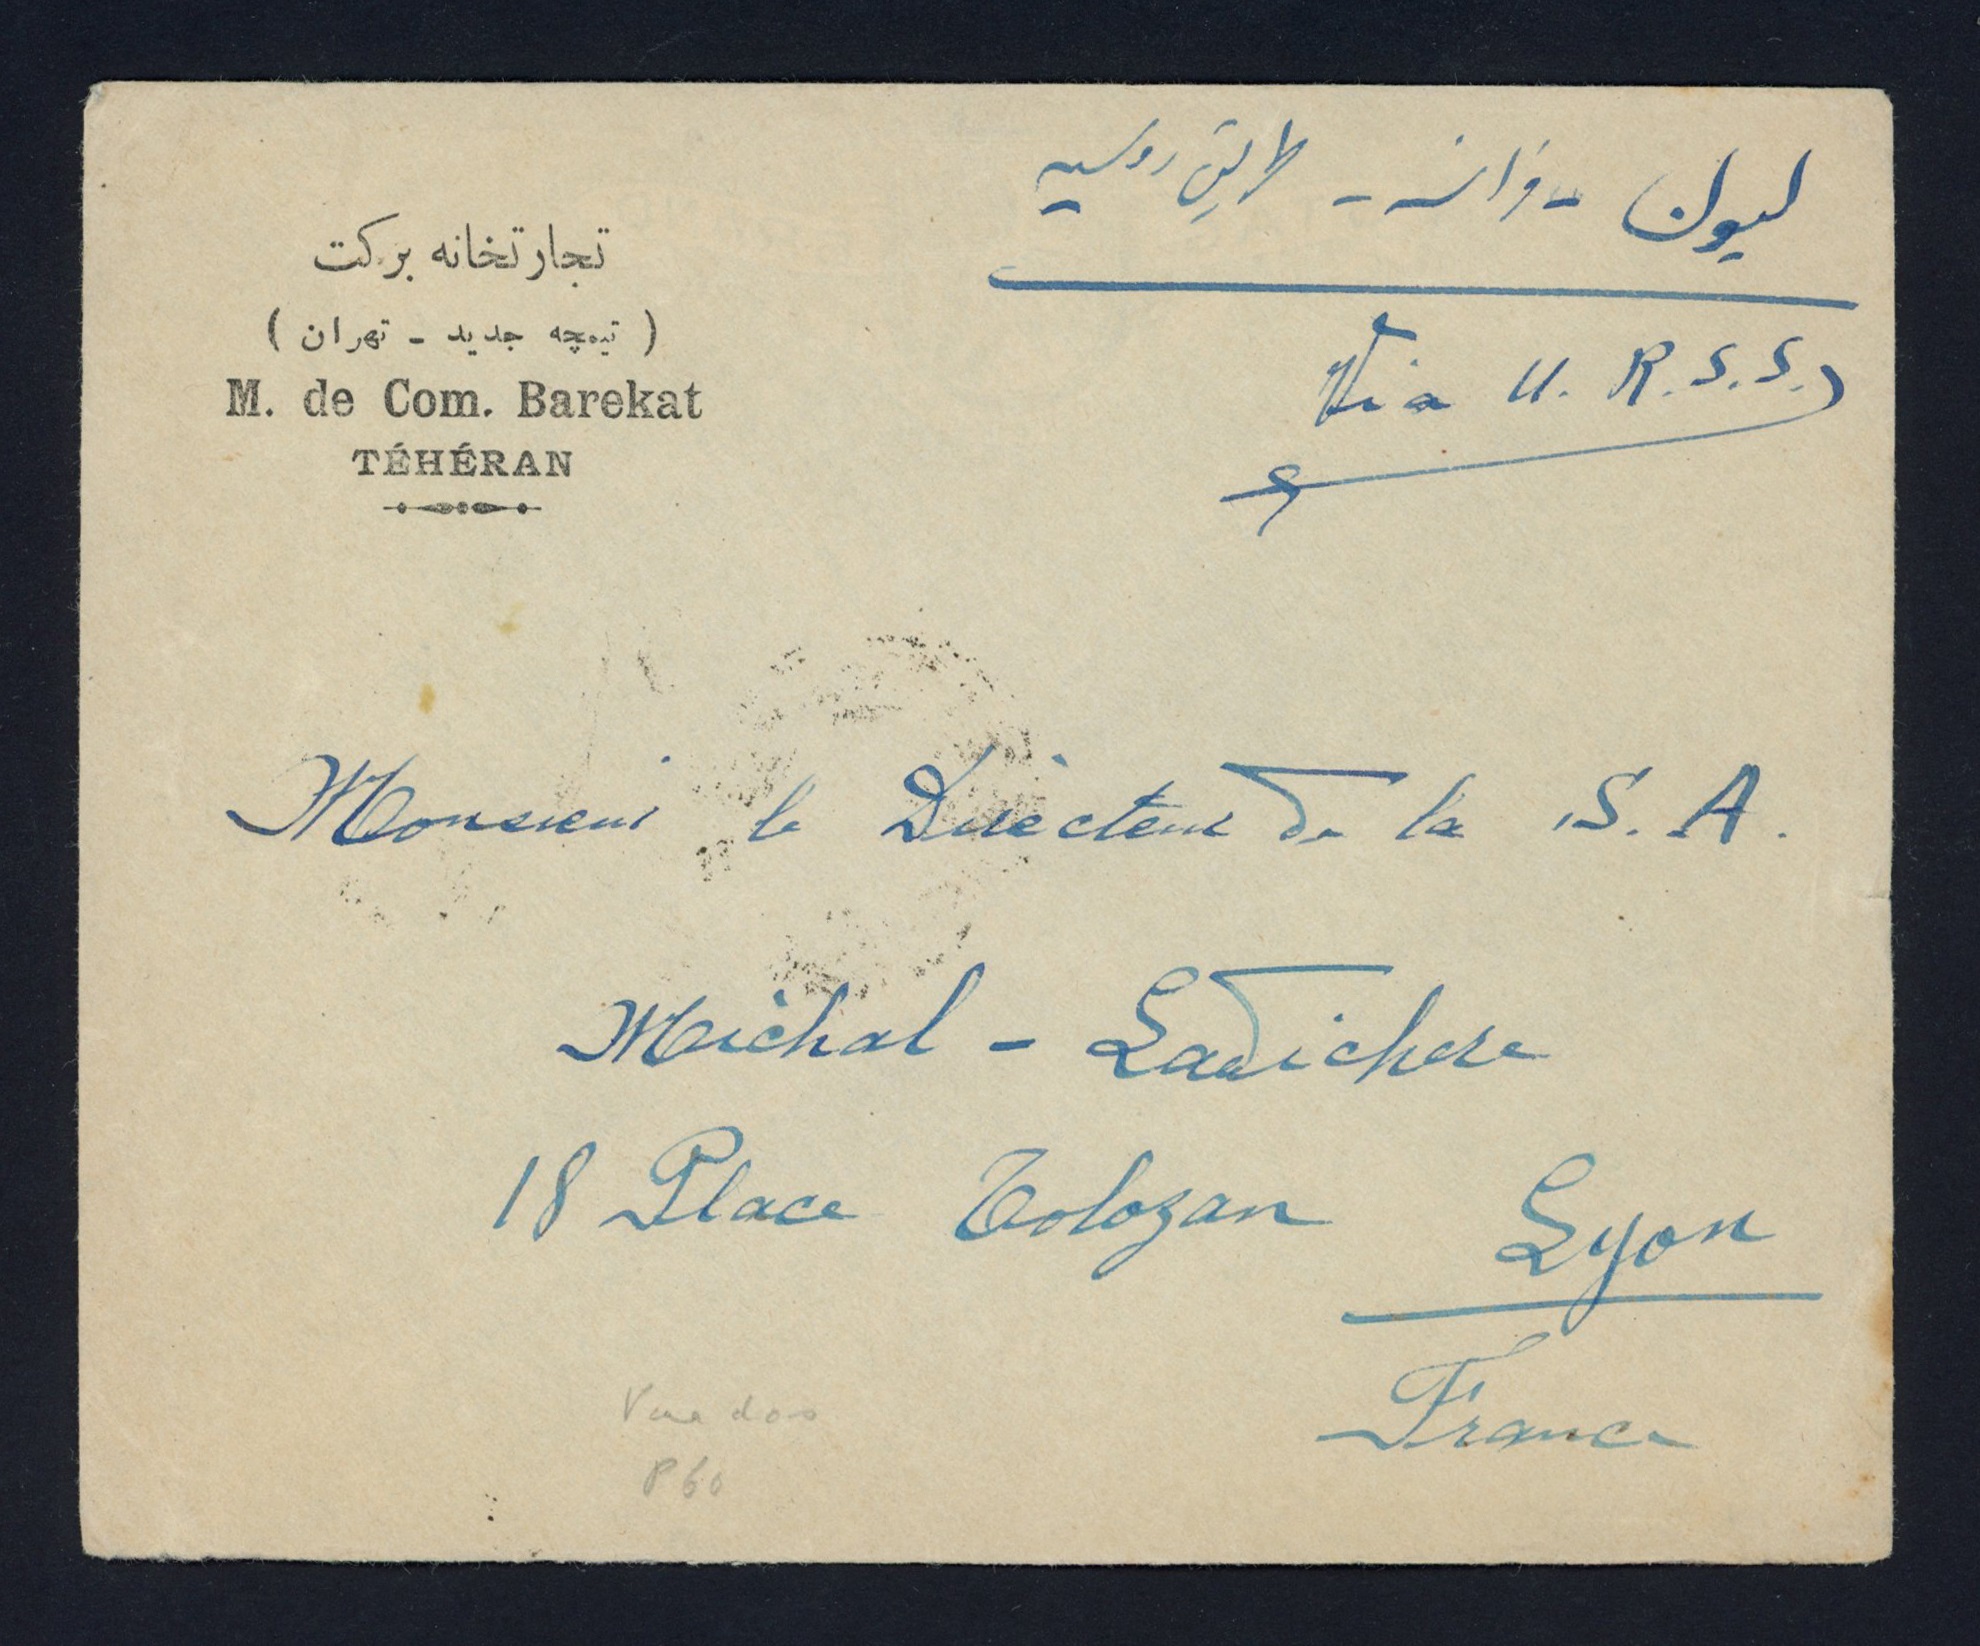 تجارتخانه برکت
( تیمچه جدید - تهران )
M. de Com. Barekat
TÉHÉRAN
لیون - فرانسه - طریق روسیه
Via U.R.S.S.
Monsieur le Directeur de la S.A.
Michal - Ladichere
18 Place Tolozan Lyon
France
P 60